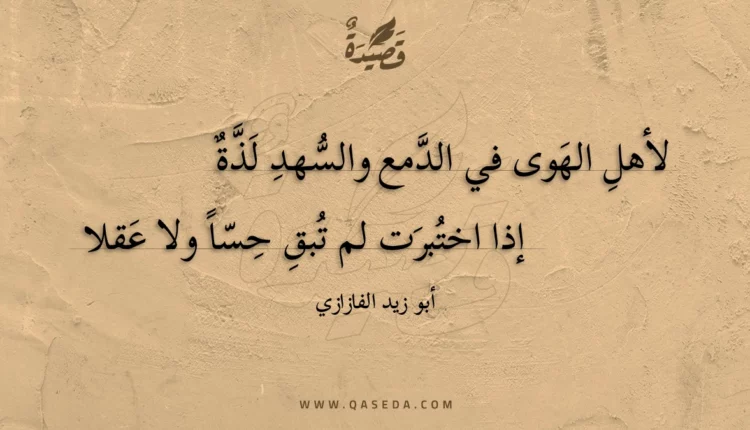 قَصِيدَةٌ
لأهلِ الهَوى في الدَّمع والسُّهدِ لَذَّةٌ
إذا اختُبرَت لم تُبقِ حِسّاً ولا عَقلا
أبو زيد الفازازي
WWW.QASEDA.COM